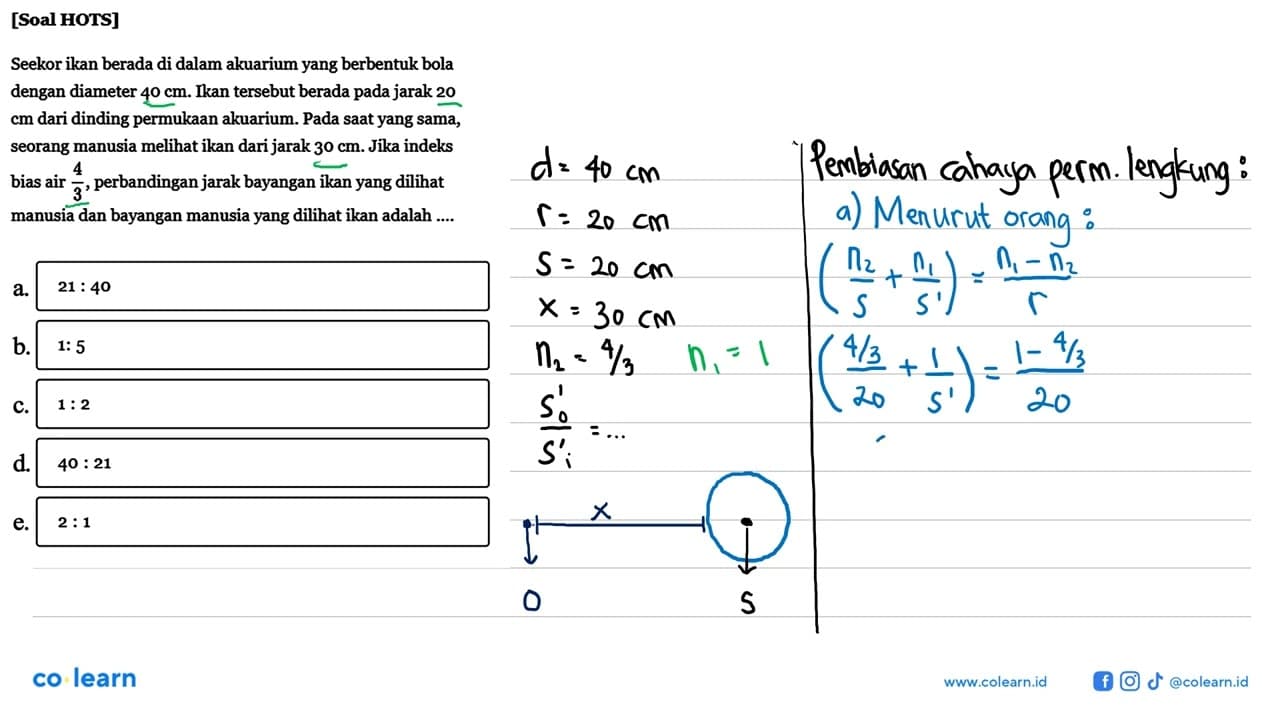 [Soal HOTS]
Seekor ikan berada di dalam akuarium yang berbentuk bola
dengan diameter 40 cm. Ikan tersebut berada pada jarak 20
cm dari dinding permukaan akuarium. Pada saat yang sama,
seorang manusia melihat ikan dari jarak 30 cm. Jika indeks
bias air 4/3, perbandingan jarak bayangan ikan yang dilihat
manusia dan bayangan manusia yang dilihat ikan adalah ....
a. 21 : 40
b. 1: 5
c. 1 : 2
d. 40 : 21
e. 2 : 1
d = 40 cm
r = 20 cm
S = 20 cm
x = 30 cm
n₂ = 4/3 n₁ = 1
S'o/S'i = ...
x
O S
Pembiasan cahaya perm. lengkung :
a) Menurut orang :
(n₂/s + n₁/s') = (n₁ - n₂)/r
((4/3)/20 + 1/s') = (1 - 4/3)/20
co learn
www.colearn.id @colearn.id